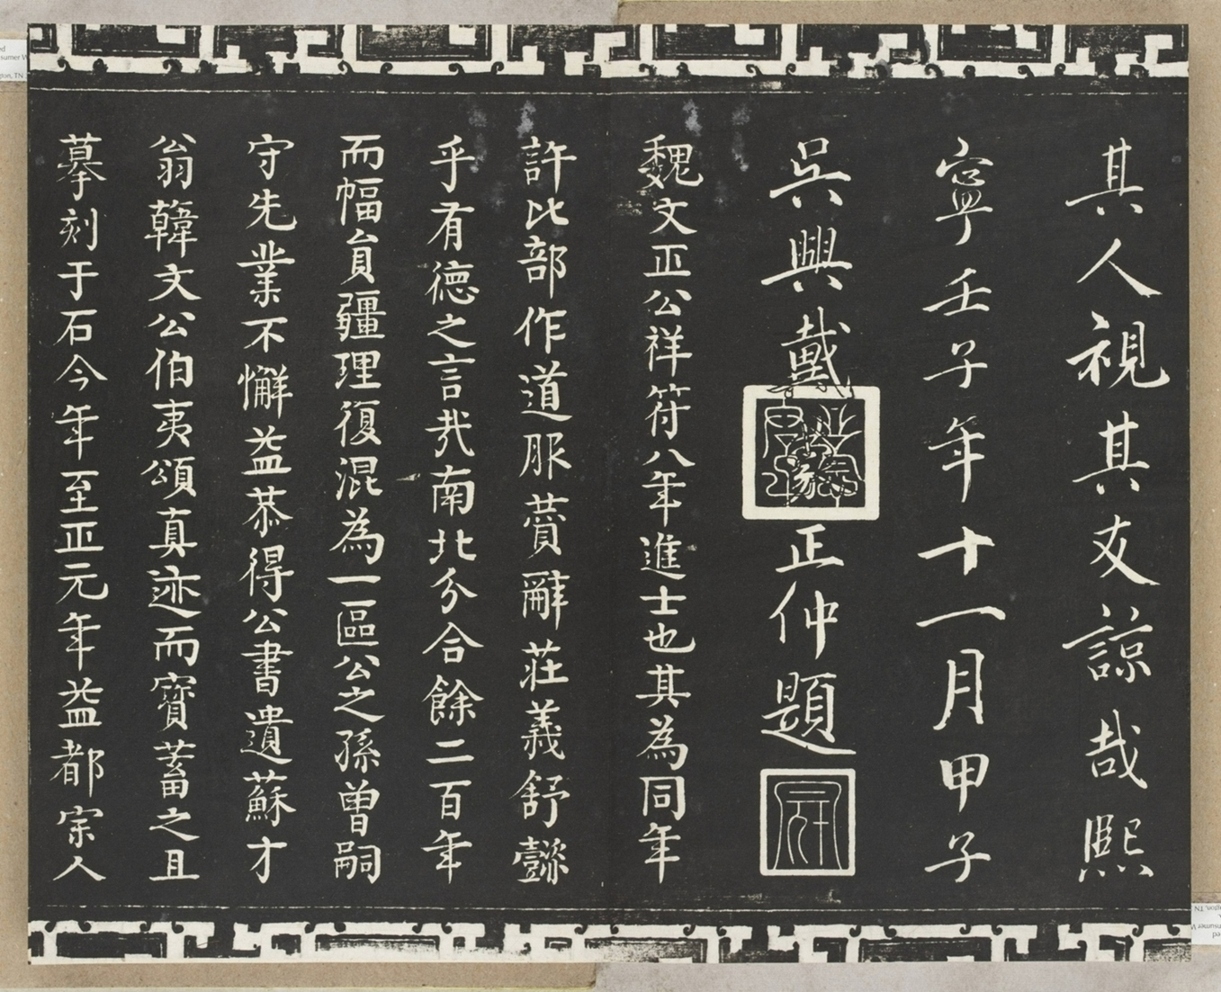 其人視其友諒哉熙
寧壬子年十一月甲子
吳興戴正仲題
魏文正公祥符八年進士也其為同年
許比部作道服贊辭莊義舒懿
乎有德之言哉南北分合餘二百年
而幅員疆理復混為一區公之孫曾嗣
守先業不懈益恭得公書遺蘇才
翁韓文公伯夷頌真迹而寳蓄之且
摹刻于石今年至正元年益都宗人